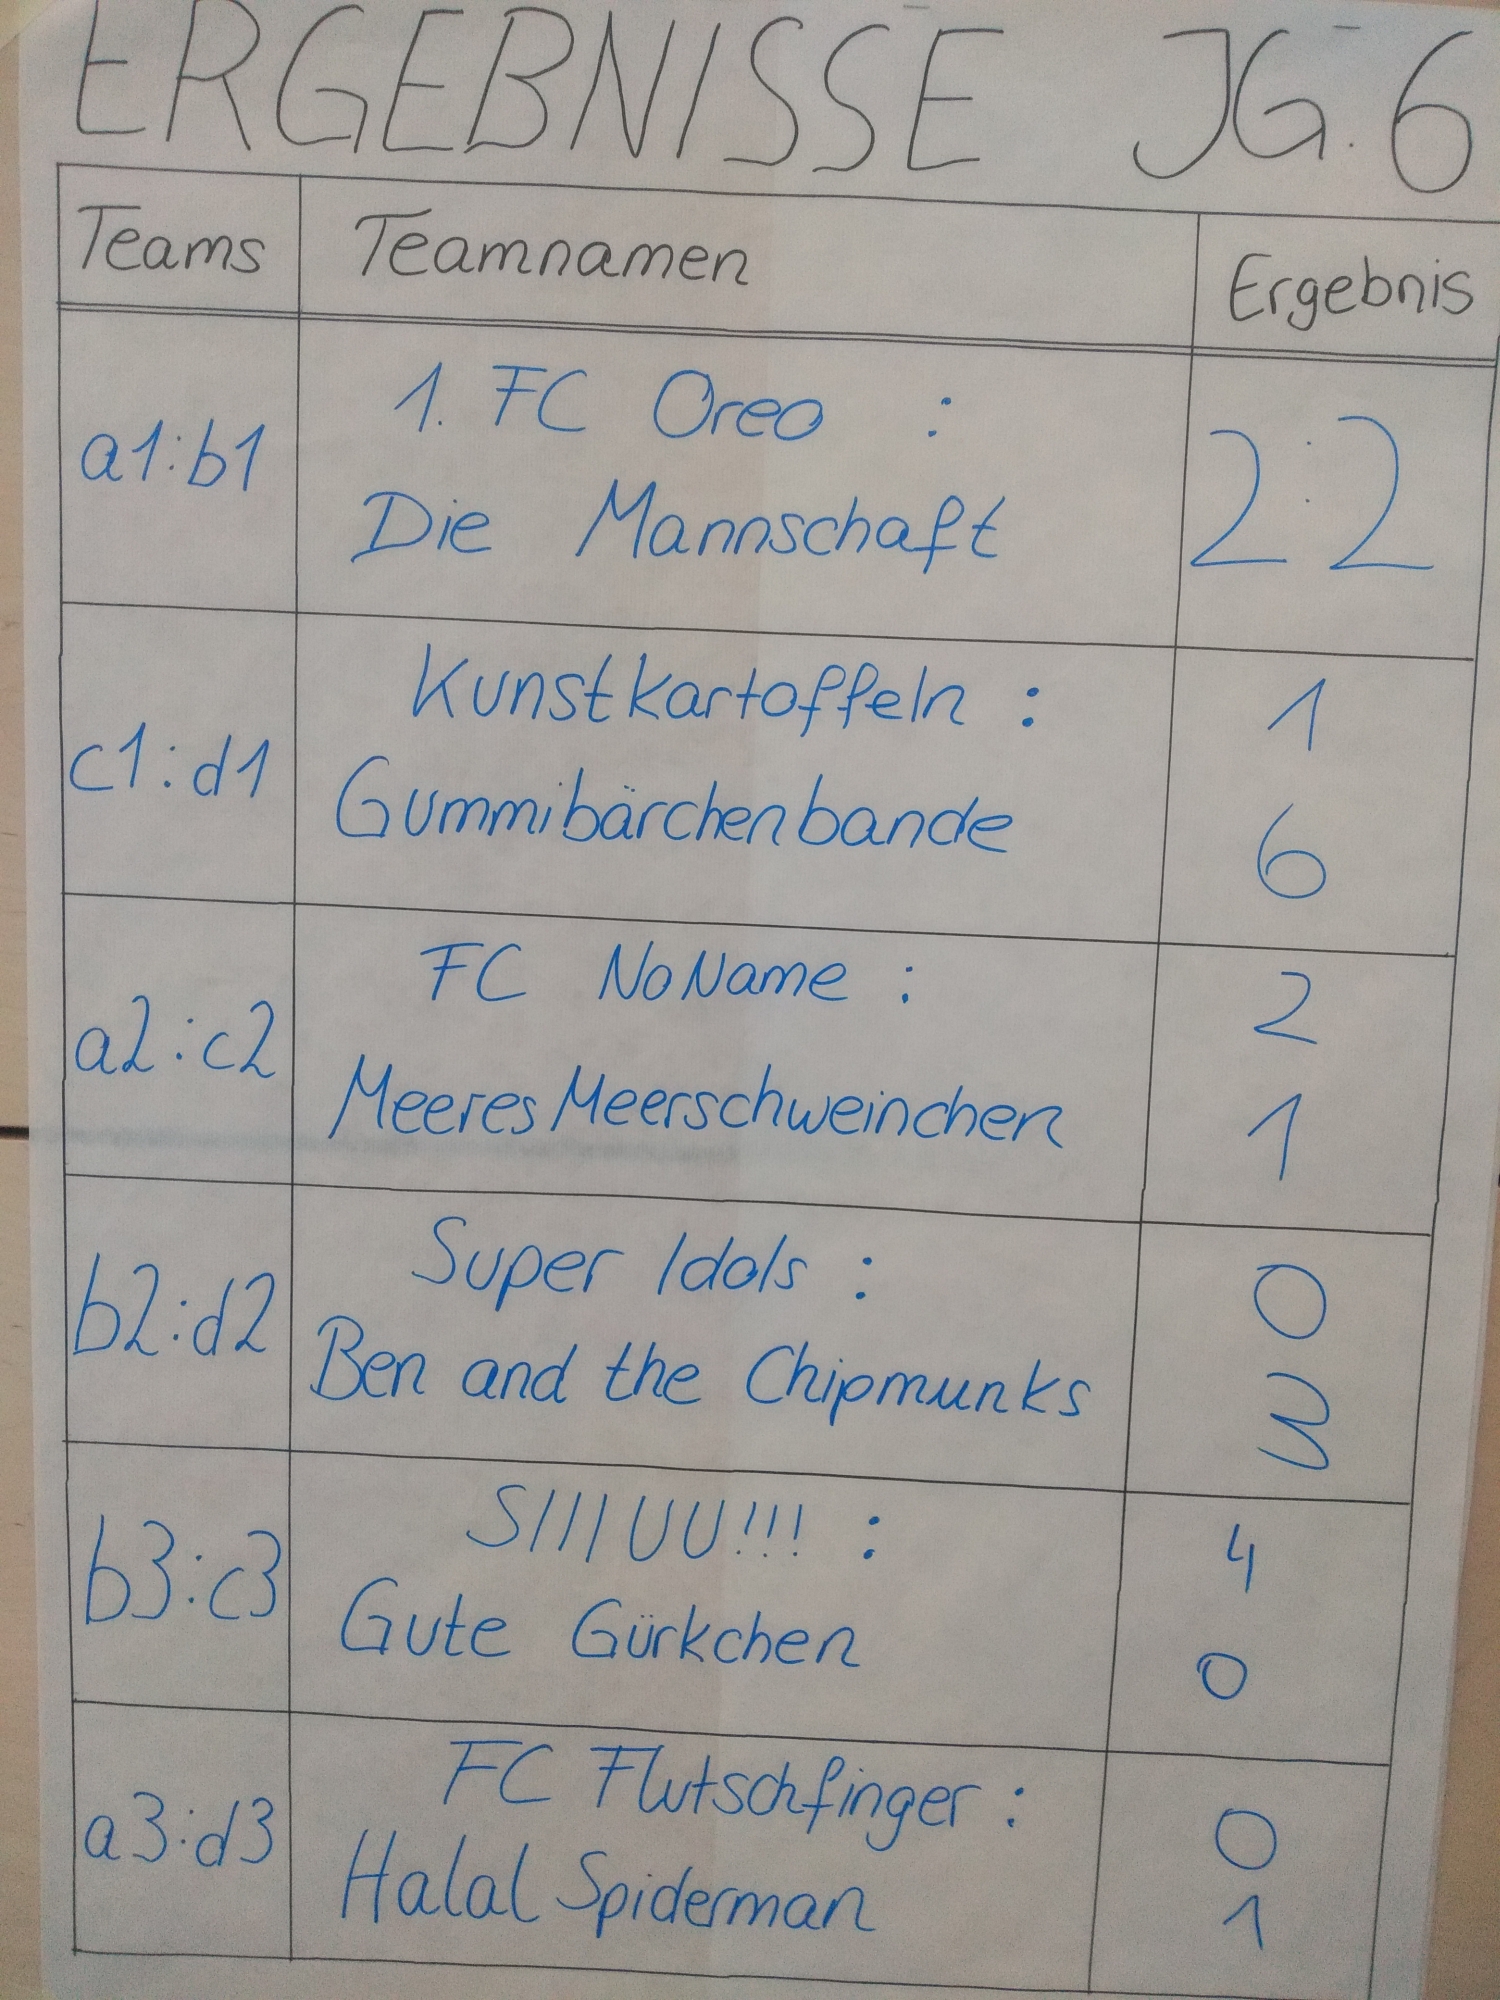 ERGEBNISSE JG. 6
Teams Teamnamen Ergebnis
a1:b1 1. FC Oreo : 2:2
Die Mannschaft
c1:d1 Kunstkartoffeln : 1
Gummibärchenbande 6
a2:c2 FC NoName : 2
MeeresMeerschweinchen 1
b2:d2 Super Idols : 0
Ben and the Chipmunks 3
b3:c3 SIIIUU!!! : 4
Gute Gürkchen 0
a3:d3 FC Flutschfinger : 0
Halal Spiderman 1